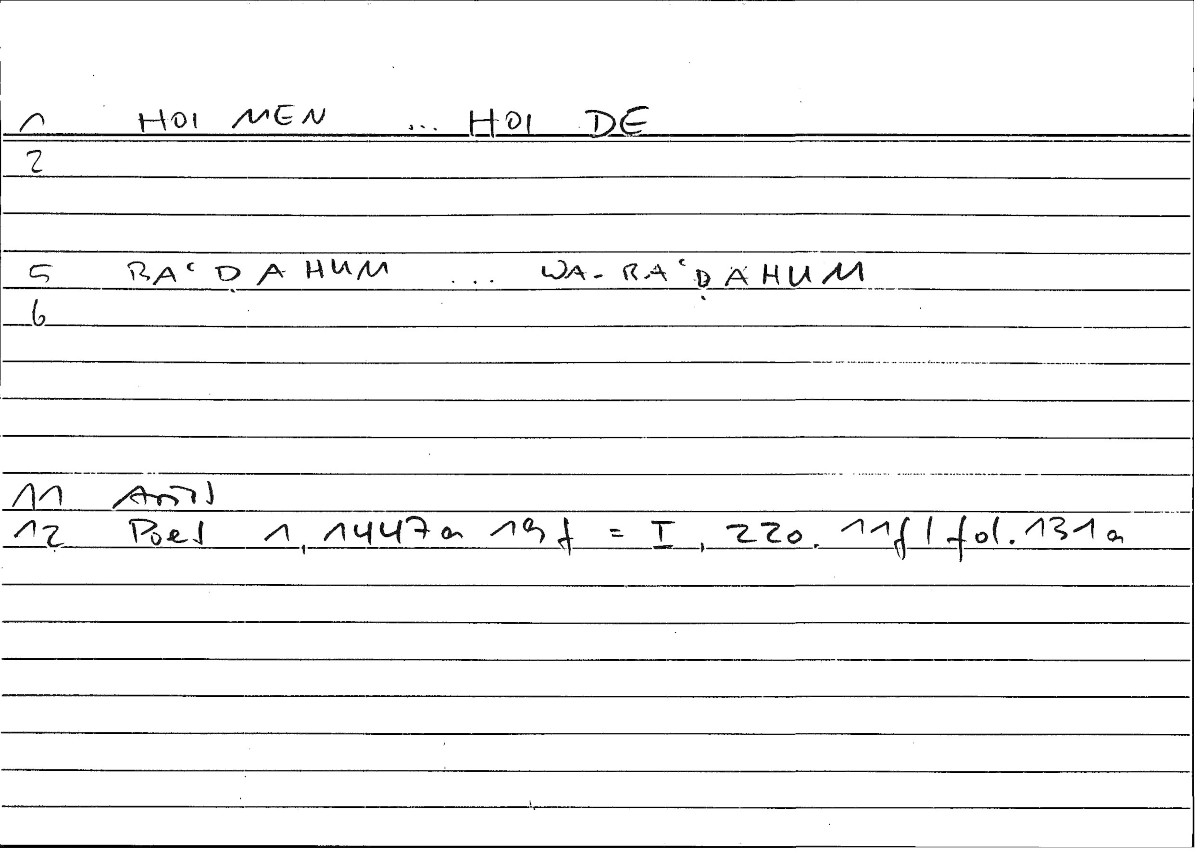 1 HOI MEN ... HOI DE
2
5 BAʿḌAHUM ... WA-BAʿḌAHUM
6
11 Arist
12 Poet 1, 1447a 19f = I, 220. 11f / fol. 131a